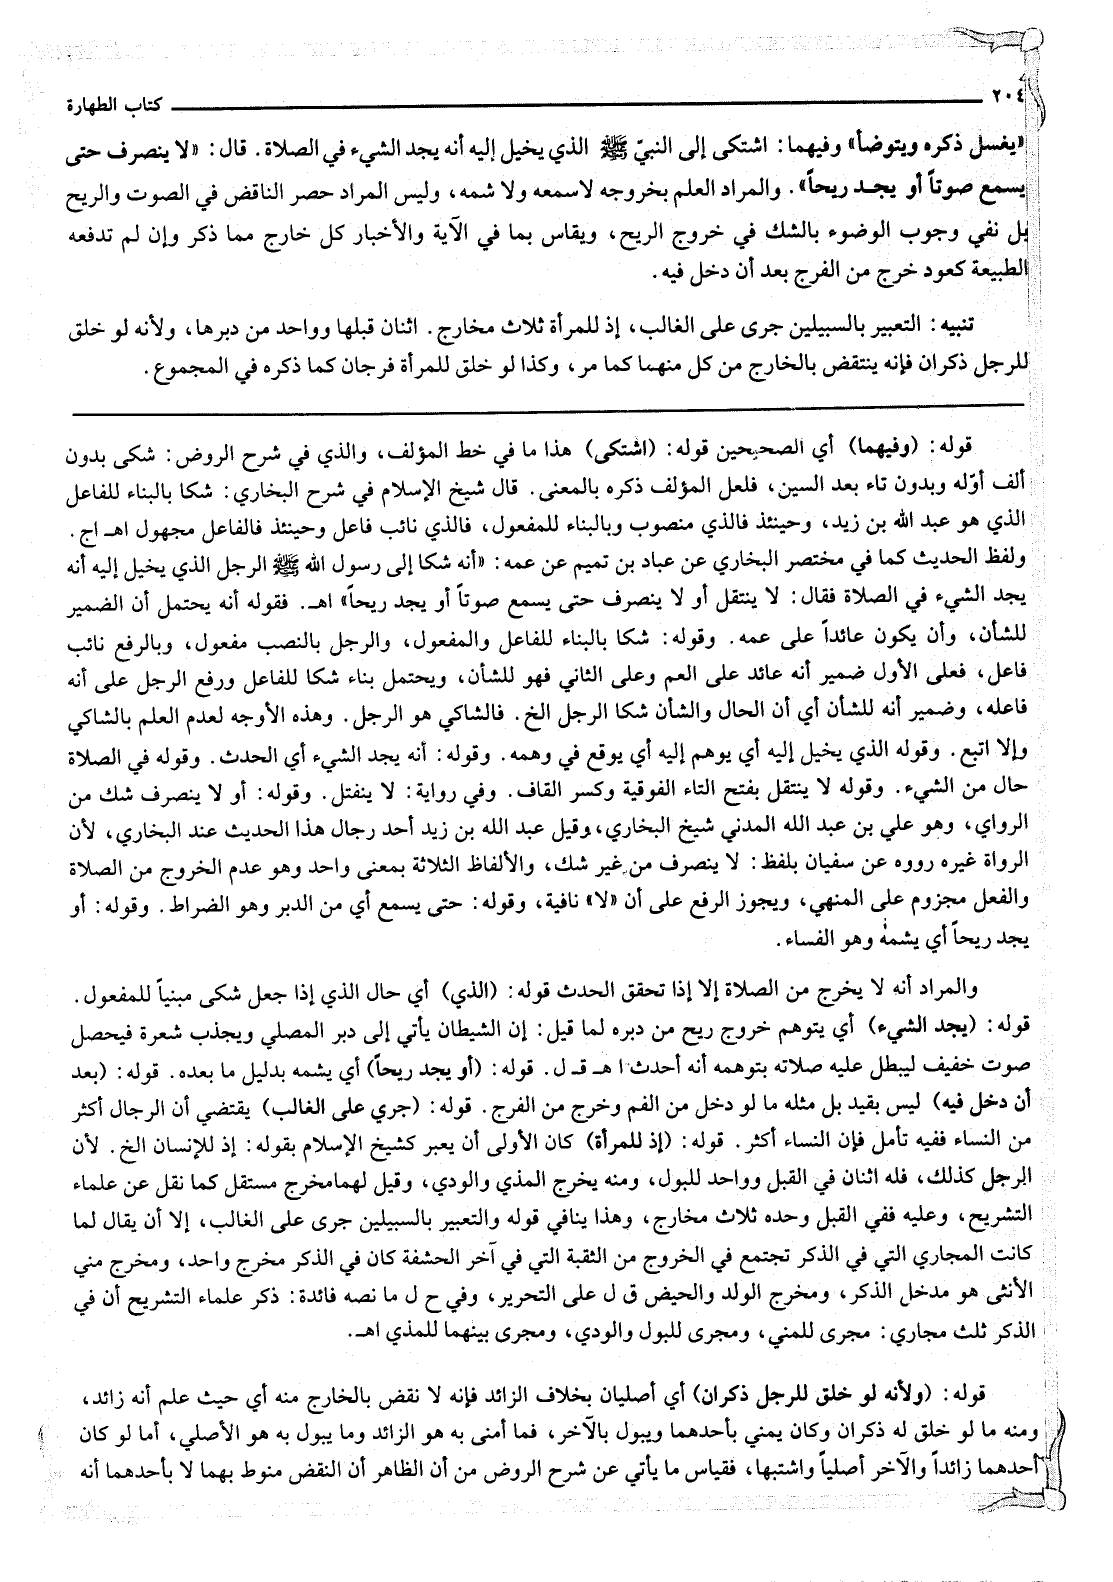 ٢٠٤ كتاب الطهارة
«يغسل ذكره ويتوضأ» وفيهما: اشتكى إلى النبيّ ﷺ الذي يخيل إليه أنه يجد الشيء في الصلاة. قال: «لا ينصرف حتى
يسمع صوتاً أو يجـد ريحاً». والمراد العلم بخروجه لا سمعه ولا شمه، وليس المراد حصر الناقض في الصوت والريح
بل نفي وجوب الوضوء بالشك في خروج الريح، ويقاس بما في الآية والأخبار كل خارج مما ذكر وإن لم تدفعه
الطبيعة كعود خرج من الفرج بعد أن دخل فيه.
تنبيه: التعبير بالسبيلين جرى على الغالب، إذ للمرأة ثلاث مخارج. اثنان قبلها وواحد من دبرها، ولأنه لو خلق
للرجل ذكران فإنه ينتقض بالخارج من كل منهما كما مر، وكذا لو خلق للمرأة فرجان كما ذكره في المجموع.
قوله: (وفيهما) أي الصحيحين قوله: (اشتكى) هذا ما في خط المؤلف، والذي في شرح الروض: شكى بدون
ألف أوّله وبدون تاء بعد السين، فلعل المؤلف ذكره بالمعنى. قال شيخ الإسلام في شرح البخاري: شكا بالبناء للفاعل
الذي هو عبد الله بن زيد، وحينئذ فالذي منصوب وبالبناء للمفعول، فالذي نائب فاعل وحينئذ فالفاعل مجهول اهـ اج.
ولفظ الحديث كما في مختصر البخاري عن عباد بن تميم عن عمه: «أنه شكا إلى رسول الله ﷺ الرجل الذي يخيل إليه أنه
يجد الشيء في الصلاة فقال: لا ينتقل أو لا ينصرف حتى يسمع صوتاً أو يجد ريحاً» اهـ. فقوله أنه يحتمل أن الضمير
للشأن، وأن يكون عائداً على عمه. وقوله: شكا بالبناء للفاعل والمفعول، والرجل بالنصب مفعول، وبالرفع نائب
فاعل، فعلى الأول ضمير أنه عائد على العم وعلى الثاني فهو للشأن، ويحتمل بناء شكا للفاعل ورفع الرجل على أنه
فاعله، وضمير أنه للشأن أي أن الحال والشأن شكا الرجل الخ. فالشاكي هو الرجل. وهذه الأوجه لعدم العلم بالشاكي
وإلا اتبع. وقوله الذي يخيل إليه أي يوهم إليه أي يوقع في وهمه. وقوله: أنه يجد الشيء أي الحدث. وقوله في الصلاة
حال من الشيء. وقوله لا ينتقل بفتح التاء الفوقية وكسر القاف. وفي رواية: لا ينفتل. وقوله: أو لا ينصرف شك من
الرواي، وهو علي بن عبد الله المدني شيخ البخاري، وقيل عبد الله بن زيد أحد رجال هذا الحديث عند البخاري، لأن
الرواة غيره رووه عن سفيان بلفظ: لا ينصرف من غير شك، والألفاظ الثلاثة بمعنى واحد وهو عدم الخروج من الصلاة
والفعل مجزوم على المنهي، ويجوز الرفع على أن «لا» نافية، وقوله: حتى يسمع أي من الدبر وهو الضراط. وقوله: أو
يجد ريحاً أي يشمه وهو الفساء.
والمراد أنه لا يخرج من الصلاة إلا إذا تحقق الحدث قوله: (الذي) أي حال الذي إذا جعل شكى مبنياً للمفعول.
قوله: (يجد الشيء) أي يتوهم خروج ريح من دبره لما قيل: إن الشيطان يأتي إلى دبر المصلي ويجذب شعرة فيحصل
صوت خفيف ليبطل عليه صلاته بتوهمه أنه أحدث ا هـ ق ل. قوله: (أو يجد ريحاً) أي يشمه بدليل ما بعده. قوله: (بعد
أن دخل فيه) ليس بقيد بل مثله ما لو دخل من الفم وخرج من الفرج. قوله: (جري على الغالب) يقتضي أن الرجال أكثر
من النساء ففيه تأمل فإن النساء أكثر. قوله: (إذ للمرأة) كان الأولى أن يعبر كشيخ الإسلام بقوله: إذ للإنسان الخ. لأن
الرجل كذلك، فله اثنان في القبل وواحد للبول، ومنه يخرج المذي والودي، وقيل لهمامخرج مستقل كما نقل عن علماء
التشريح، وعليه ففي القبل وحده ثلاث مخارج، وهذا ينافي قوله والتعبير بالسبيلين جرى على الغالب، إلا أن يقال لما
كانت المجاري التي في الذكر تجتمع في الخروج من الثقبة التي في آخر الحشفة كان في الذكر مخرج واحد، ومخرج مني
الأنثى هو مدخل الذكر، ومخرج الولد والحيض ق ل على التحرير، وفي ح ل ما نصه فائدة: ذكر علماء التشريح أن في
الذكر ثلث مجاري: مجرى للمني، ومجرى للبول والودي، ومجرى بينهما للمذي اهـ.
قوله: (ولأنه لو خلق للرجل ذكران) أي أصليان بخلاف الزائد فإنه لا نقض بالخارج منه أي حيث علم أنه زائد،
ومنه ما لو خلق له ذكران وكان يمني بأحدهما ويبول بالآخر، فما أمنى به هو الزائد وما يبول به هو الأصلي، أما لو كان
أحدهما زائداً والآخر أصلياً واشتبها، فقياس ما يأتي عن شرح الروض من أن الظاهر أن النقض منوط بهما لا بأحدهما أنه